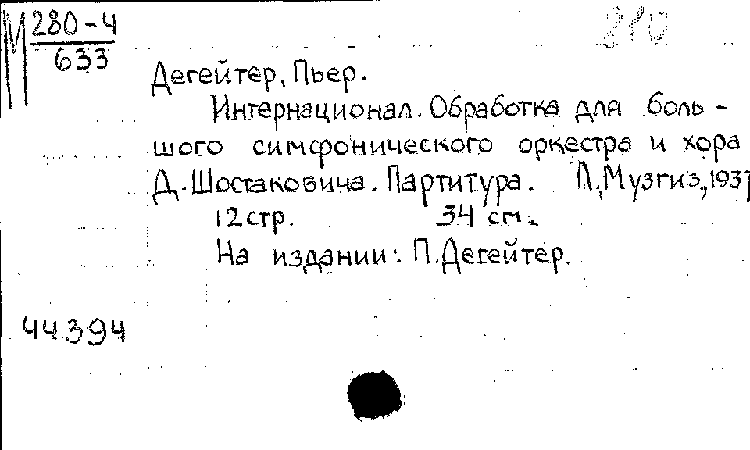 М 280-4
633
210
Дегейтер, Пьер.
Интернационал. Обработка для боль-
шого симфонического оркестра и хора
Д. Шостаковича. Партитура. Л., Музгиз, 1937
12 стр. 34 см.
На издании: П. Дегейтер.
44394